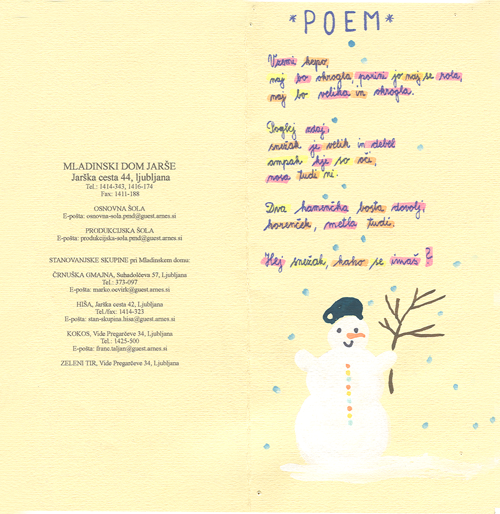 MLADINSKI DOM JARŠE
Jarška cesta 44, ljubljana
Tel.: 1414-343, 1416-174
Fax: 1411-188
OSNOVNA ŠOLA
E-pošta: osnovna-sola.prnd@guest.arnes.si
PRODUKCIJSKA ŠOLA
E-pošta: produkcijska-sola.prnd@guest.arnes.si
STANOVANJSKE SKUPINE pri Mladinskem domu:
ČRNUŠKA GMAJNA, Suhadolčeva 57, Ljubljana
Tel.: 373-097
E-pošta: marko.ocvirk@guest.arnes.si
HIŠA, Jarška cesta 42, Ljubljana
Tel./fax: 1414-323
E-pošta: stan-skupina.hisa@guest.arnes.si
KOKOS, Vide Pregarčeve 34, Ljubljana
Tel.: 1425-500
E-pošta: franc.taljan@guest.arnes.si
ZELENI TIR, Vide Pregarčeve 34, Ljubljana
*POEM*
Vzemi kepo,
naj bo okrogla, porini jo naj se rola,
naj bo velika in okrogla.
Poglej zdaj,
snežak je velik in debel
ampak kje so oči,
nosa tudi ni.
Dva kamenčka bosta dovolj,
korenček, metla tudi.
Hej snežak, kako se imaš?